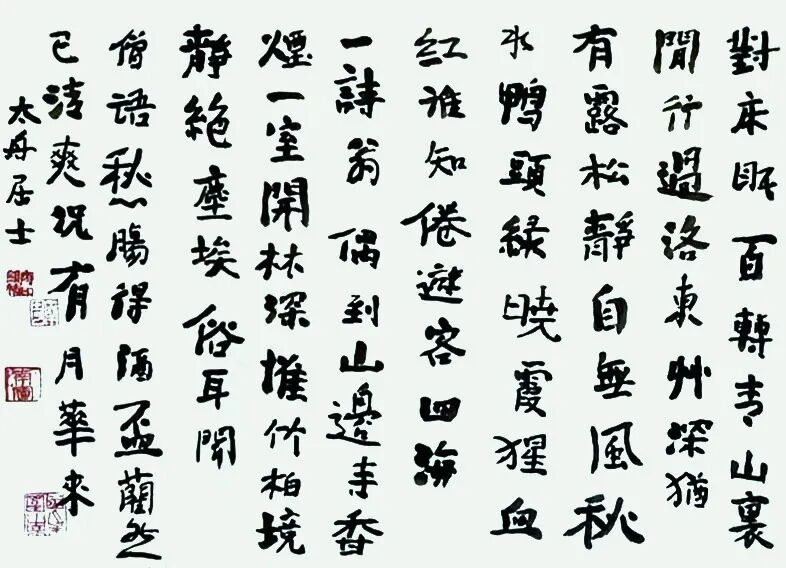 對床眠百轉青山裏
閒行過洛東艸深猶
有露松靜自無風秋
水鴨頭綠曉霞猩血
紅誰知倦遊客四海
一詩翁偶到山邊寺香
煙一室開林深擁竹柏境
靜絕塵埃俗耳聞
僧語愁腸得酒盃蕭然
已清爽況有月華來
太舟居士